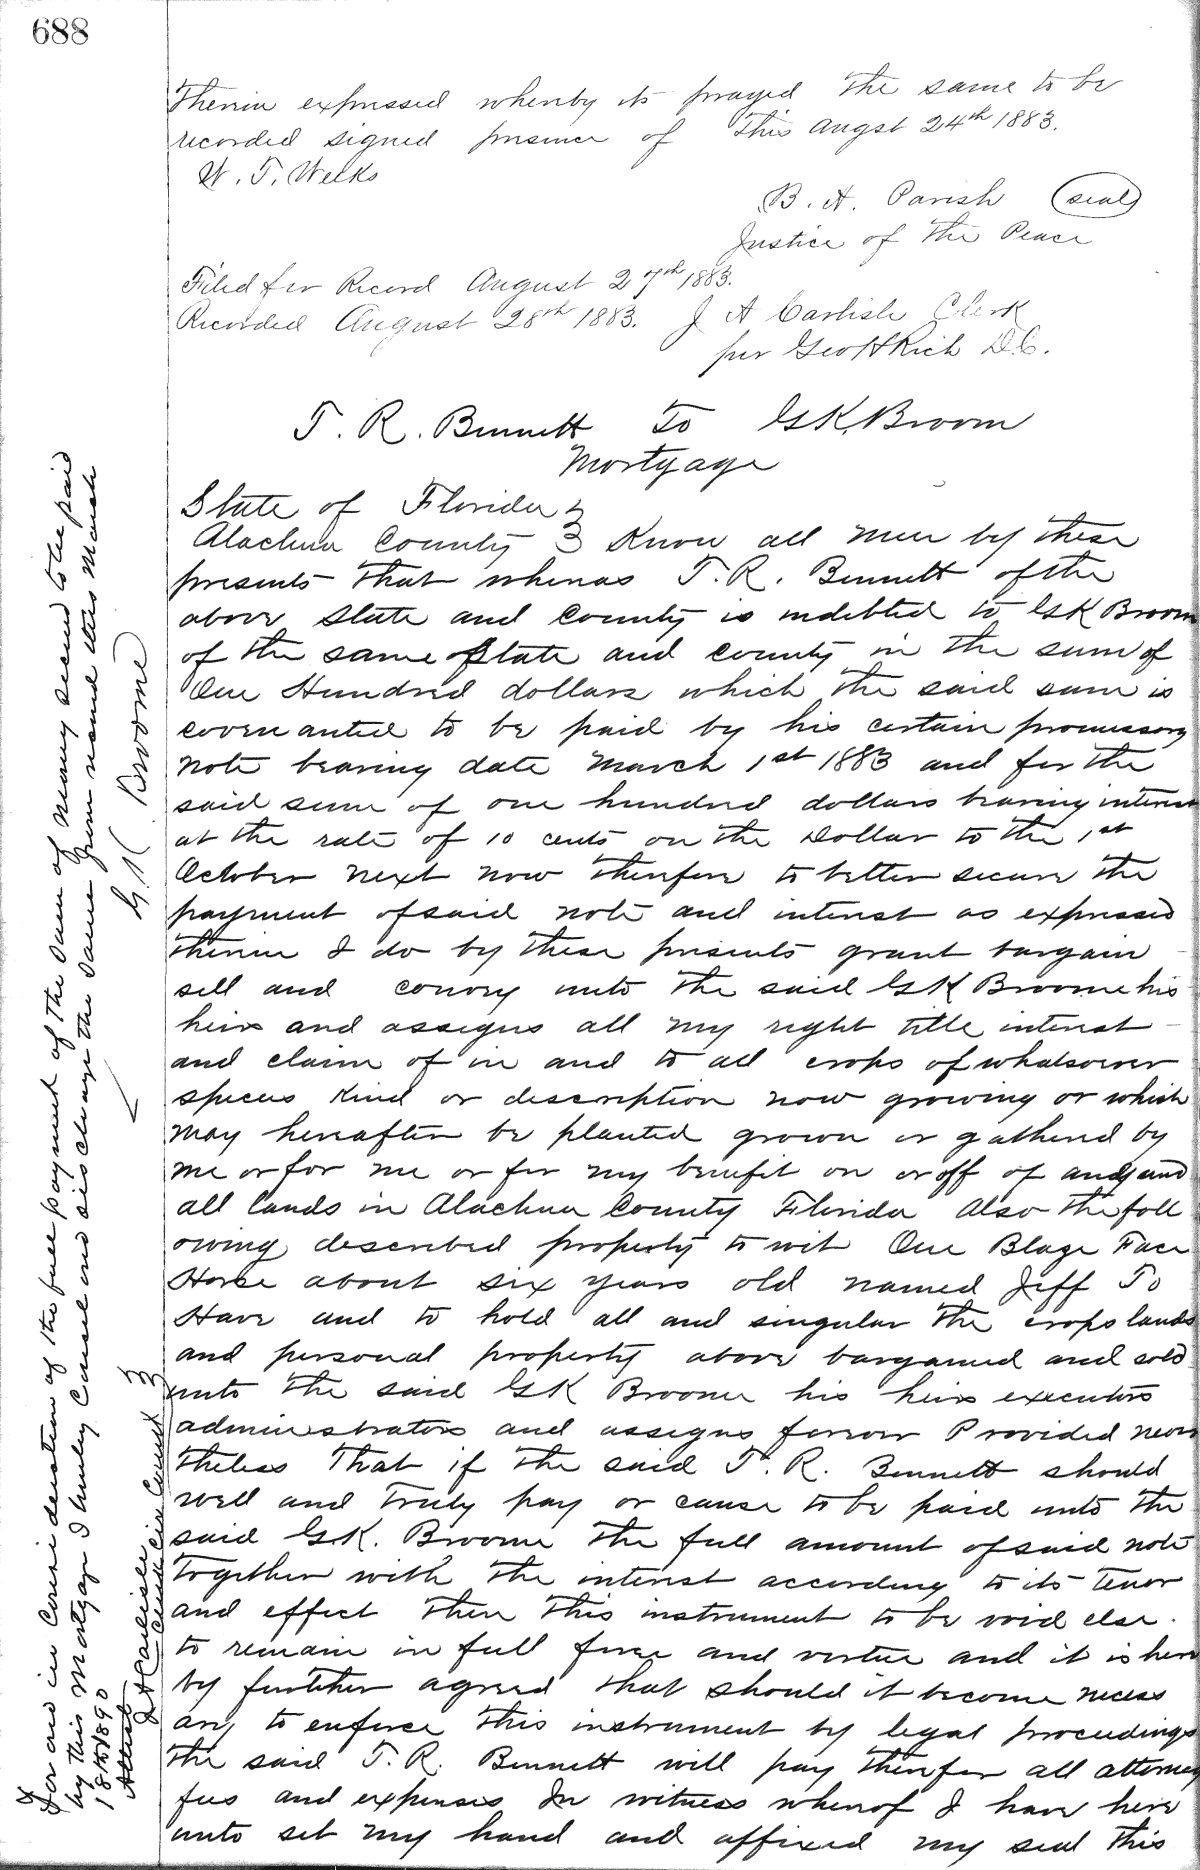 688
therein expressed whereby its prayed the same to be
recorded signed presence of This Augst 24th 1883.
W. T. Weeks
B. A. Parish (seal)
Justice of the Peace
Filed for Record August 27th 1883.
Recorded August 28th 1883. J A Carlisle Clerk
per Geo H Rich D.C.
T. R. Bennett To G K. Broom
Mortgage
State of Florida
Alachua County Know all men by these
presents that whereas T. R. Bennett of the
above State and County is indebted to G K Broom
of the same State and County in the sum of
One Hundred dollars which the said sum is
covenanted to be paid by his certain promissory
note bearing date March 1st 1883 and for the
said sum of one hundred dollars bearing interest
at the rate of 10 cents on the Dollar to the 1st
October next now therefore to better secure the
payment of said note and interest as expressed
therein I do by these presents grant bargain
sell and convey unto the said G K Broome his
heirs and assigns all my right title interest
and claim of in and to all crops of whatsoever
species kind or description now growing or which
may hereafter be planted grown or gathered by
me or for me or for my benefit on or off of any and
all lands in Alachua County Florida Also the foll
owing described property to wit One Blaze Face
Horse about six years old named Jeff To
Have and to hold all and singular the crops lands
and personal property above bargained and sold
unto the said G K Broome his heirs executors
administrators and assigns forever Provided never
theless That if the said T. R. Bennett should
well and truly pay or cause to be paid unto the
said G.K. Broome the full amount of said note
together with the interest according to its tenor
and effect then this instrument to be void else
to remain in full force and virtue and it is here
by further agreed that should it become necess
ary to enforce this instrument by legal proceedings
the said T. R. Bennett will pay therefor all attorney
fees and expenses In witness whereof I have here
unto set my hand and affixed my seal this
For and in consideration of the full payment of the sum of money secured to be paid
by this Mortgage I hereby Cancel and discharge the same from record this March
18th 1890
G K. Broome
Attest
J A Carlisle
Clerk Cir Court